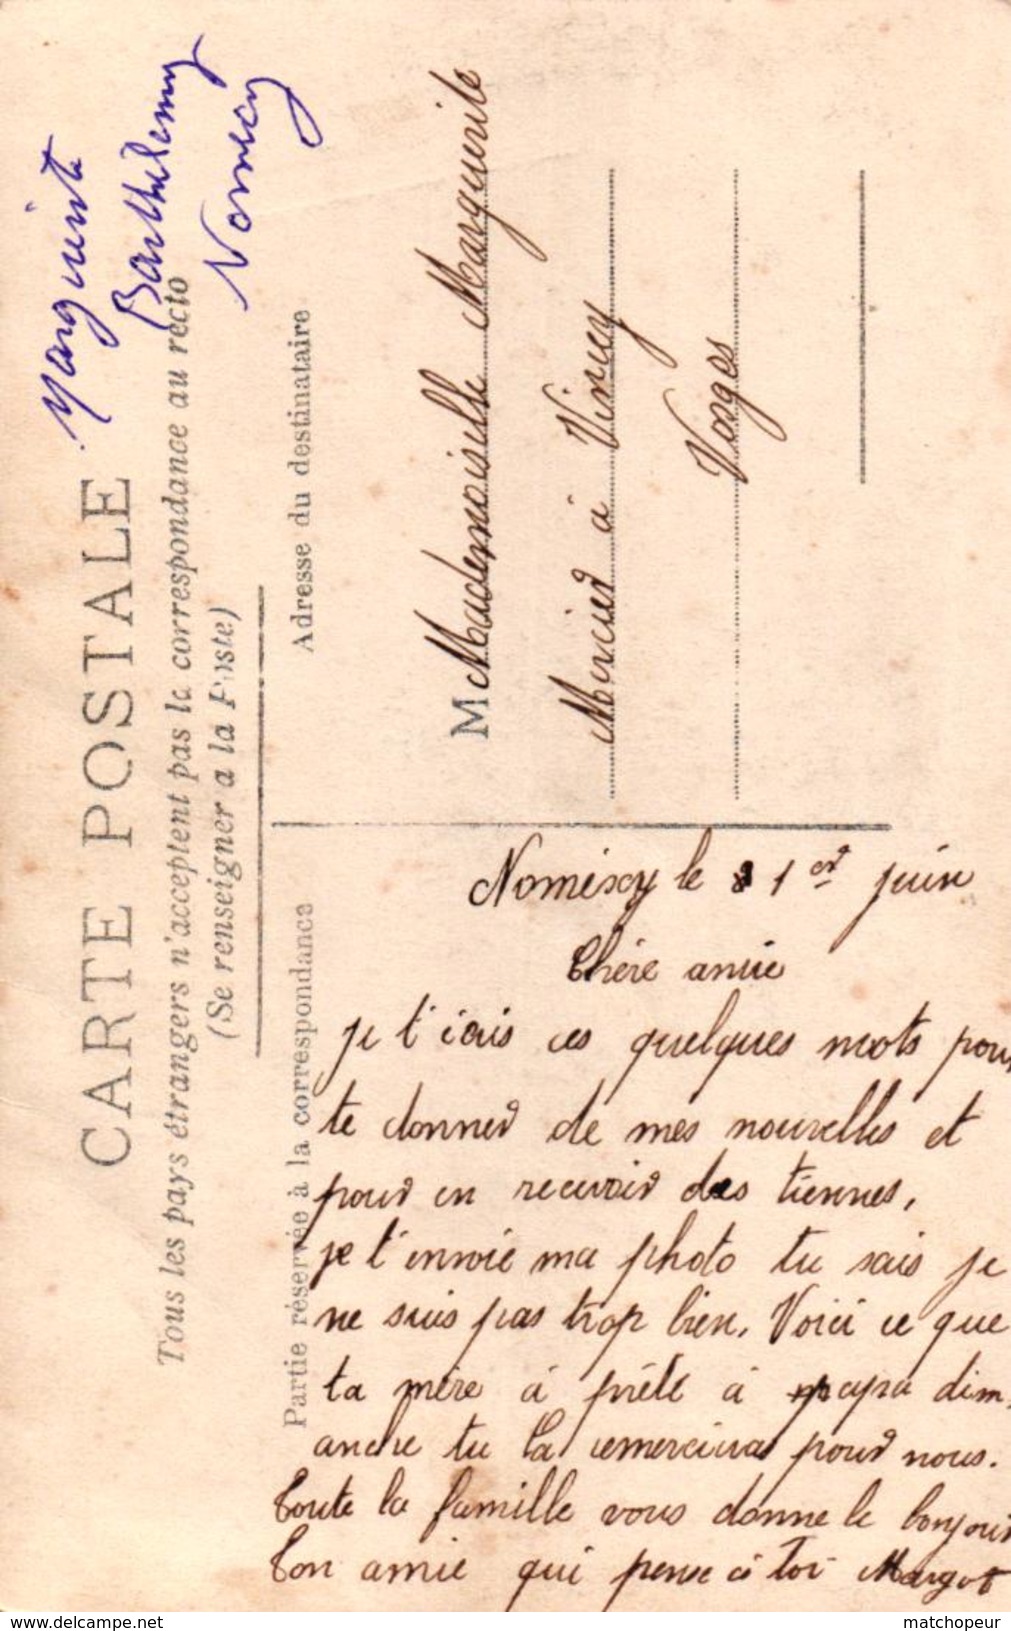 Marguerite
Barthelemy
Nomexy
CARTE POSTALE
Tous les pays étrangers n'acceptent pas la correspondance au recto
(Se renseigner a la Poste)
Partie réservée à la correspondance
Adresse du destinataire
M Mademoiselle Marguerite
Mercier à Vincey
Vosges
Nomexy le 1er juin
Chère amie
je t'ecris ces quelques mots pour
te donner de mes nouvelles et
pour en recevoir des tiennes,
je t'envoie ma photo tu sais je
ne suis pas trop bien. Voici ce que
ta mère à prêté à papa dim-
anche tu la remerciras pour nous.
Toute la famille vous donne le bonjour
Ton amie qui pense à toi Margot
matchopeur